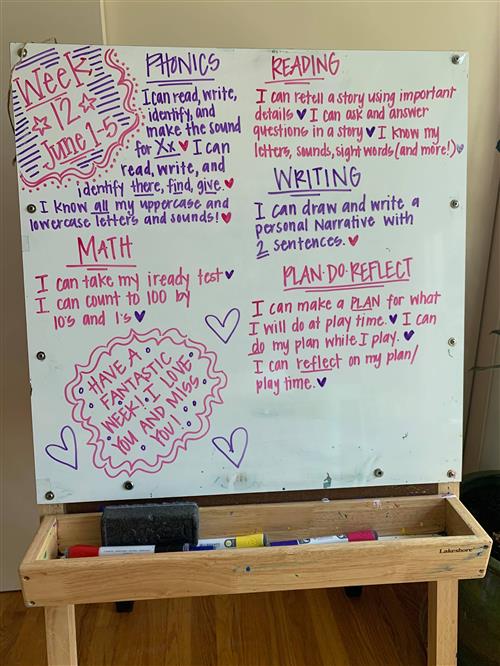 Week
12
June 1-5
PHONICS
I can read, write,
identify, and
make the sound
for Xx ♥ I can
read, write, and
identify there, find, give. ♥
I know all my uppercase and
lowercase letters and sounds! ♥
MATH
I can take my iready test ♥
I can count to 100 by
10's and 1's ♥
HAVE A
FANTASTIC
WEEK! I LOVE
YOU AND MISS
YOU!
READING
I can retell a story using important
details ♥ I can ask and answer
questions in a story ♥ I know my
letters, sounds, sight words (and more!) ♥
WRITING
I can draw and write a
personal Narrative with
2 sentences. ♥
PLAN·DO·REFLECT
I can make a PLAN for what
I will do at play time. ♥ I can
do my plan while I play. ♥
I can reflect on my plan/
play time. ♥
Lakeshore